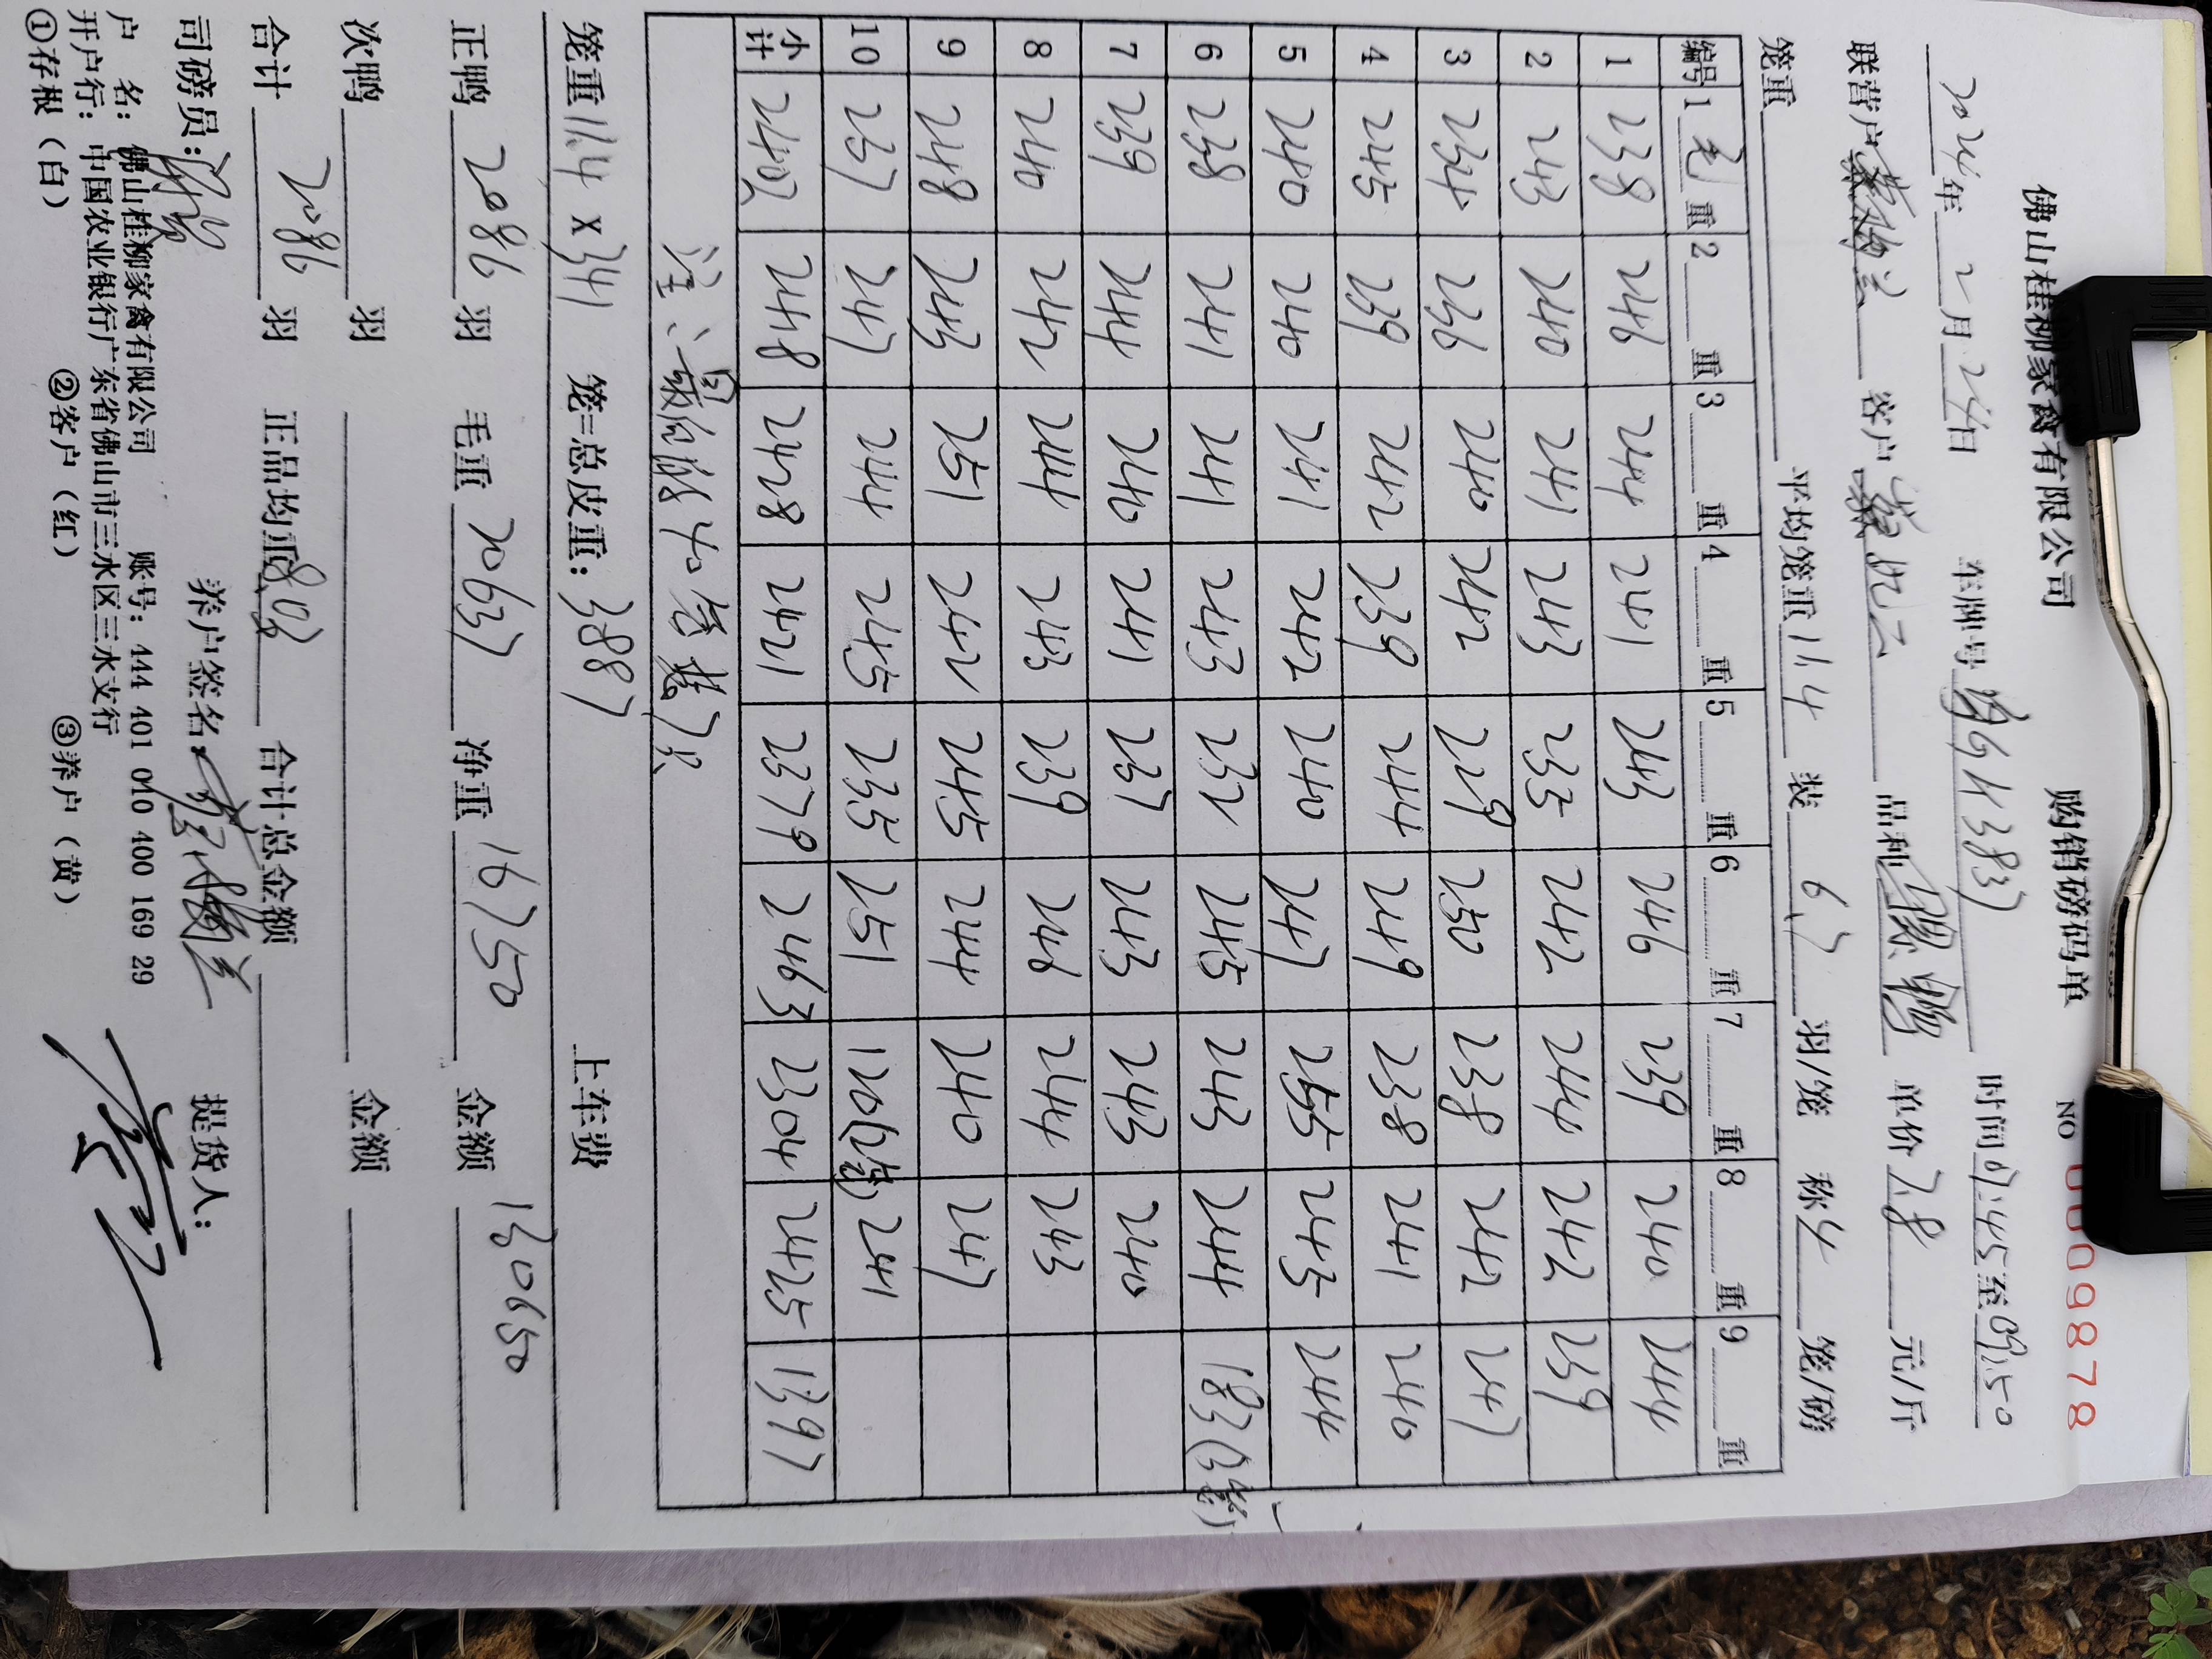 佛山桂柳家禽有限公司 购销磅码单 NO 0009878
2024年2月24日 车牌号 时间07:45至09:50
联营户 客户 品种 单价7.8元/斤
笼重 平均笼重11.4 装6.7羽/笼 称4笼/磅
编号 1毛重 2重 3重 4重 5重 6重 7重 8重 9重
1 238 246 244 241 243 246 239 240 244
2 243 240 241 243 235 242 244 242 239
3 234 236 240 242 229 250 238 242 247
4 245 239 242 239 244 249 238 241 240
5 240 240 241 242 240 247 255 245 244
6 238 241 241 243 232 245 243 244 183(3笼)
7 239 244 240 241 237 243 243 240
8 240 242 244 243 239 246 244 243
9 248 243 251 242 245 244 240 247
10 237 247 244 245 235 251 120(2笼) 241
小计 2402 2418 2428 2421 2379 2463 2304 2425 1397
注:最后的40笼装7只
笼重11.4x341 笼=总皮重:3887 上车费
正鸭2086羽 毛重20637 净重16750 金额130650
次鸭 羽 金额
合计2086羽 正品均重8.03 合计总金额
司磅员: 养户签名: 提货人:
户 名:佛山桂柳家禽有限公司 账号:444 401 010 400 169 29
开户行:中国农业银行广东省佛山市三水区三水支行
①存根(白) ②客户(红) ③养户(黄)